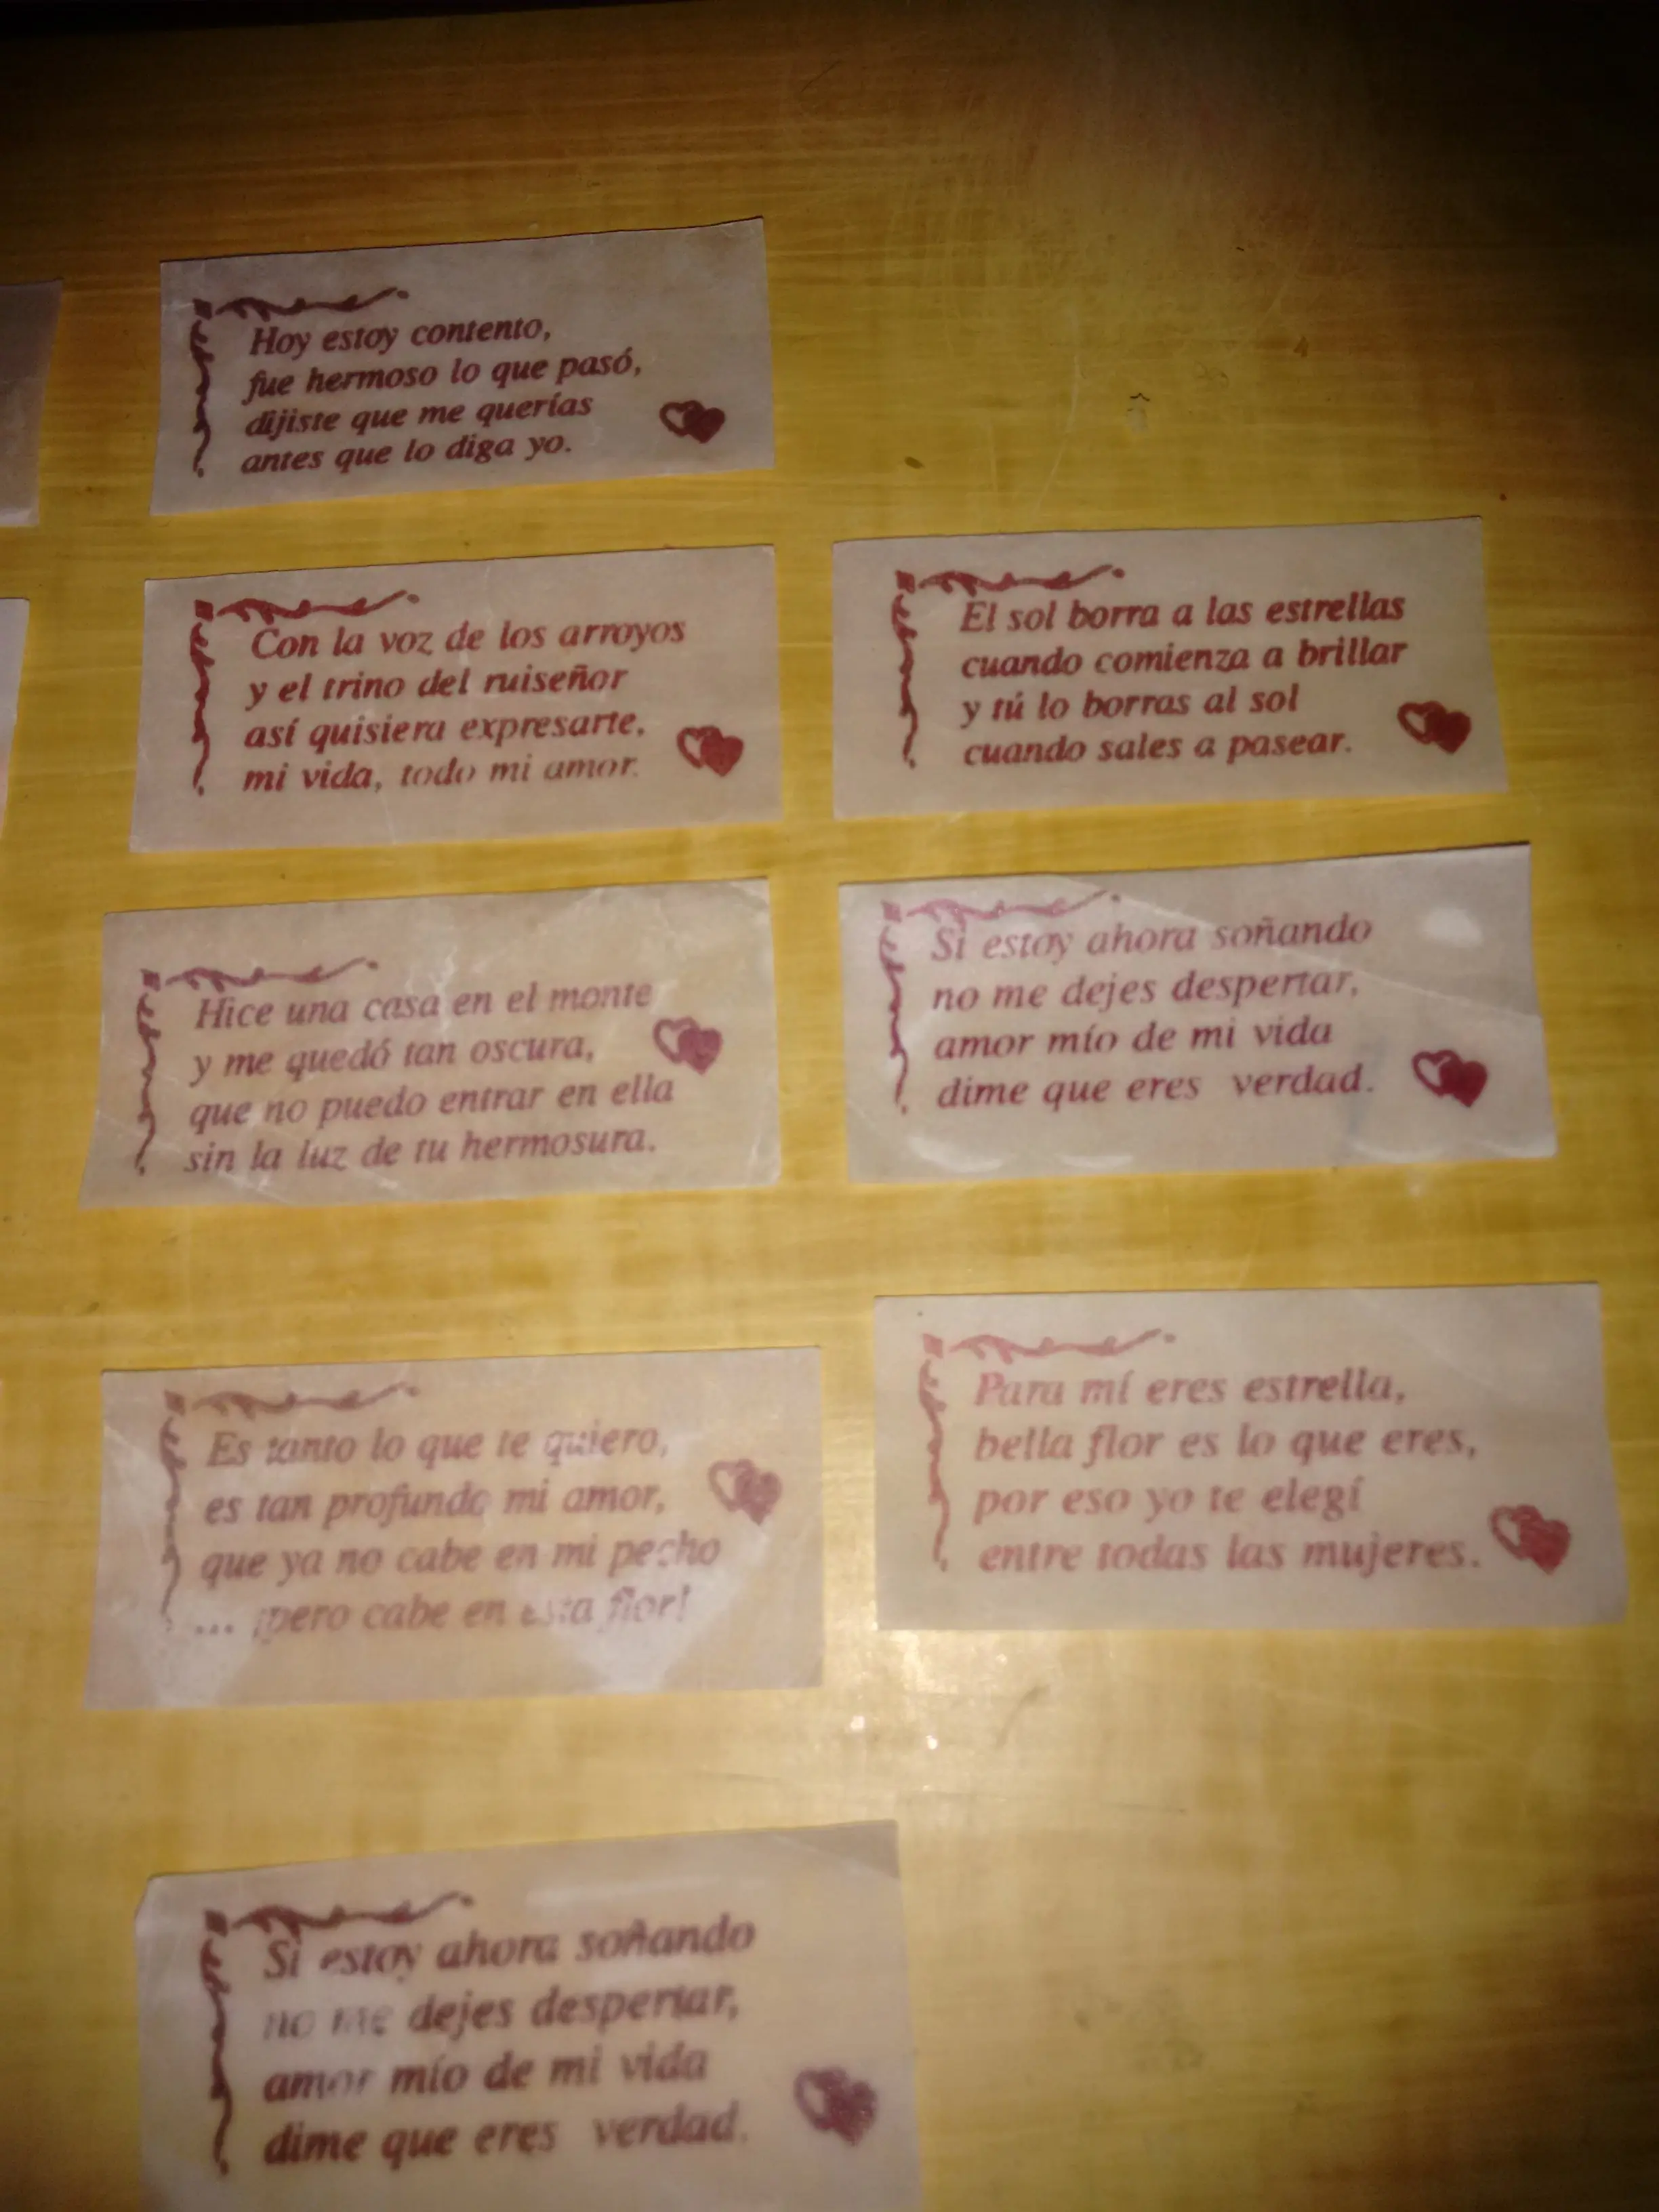 Hoy estoy contento,
fue hermoso lo que pasó,
dijiste que me querías
antes que lo diga yo.
Con la voz de los arroyos
y el trino del ruiseñor
así quisiera expresarte,
mi vida, todo mi amor.
El sol borra a las estrellas
cuando comienza a brillar
y tú lo borras al sol
cuando sales a pasear.
Hice una casa en el monte
y me quedó tan oscura,
que no puedo entrar en ella
sin la luz de tu hermosura.
Si estoy ahora soñando
no me dejes despertar,
amor mío de mi vida
dime que eres verdad.
Es tanto lo que te quiero,
es tan profundo mi amor,
que ya no cabe en mi pecho
... ¡pero cabe en esta flor!
Para mí eres estrella,
bella flor es lo que eres,
por eso yo te elegí
entre todas las mujeres.
Si estoy ahora soñando
no me dejes despertar,
amor mío de mi vida
dime que eres verdad.